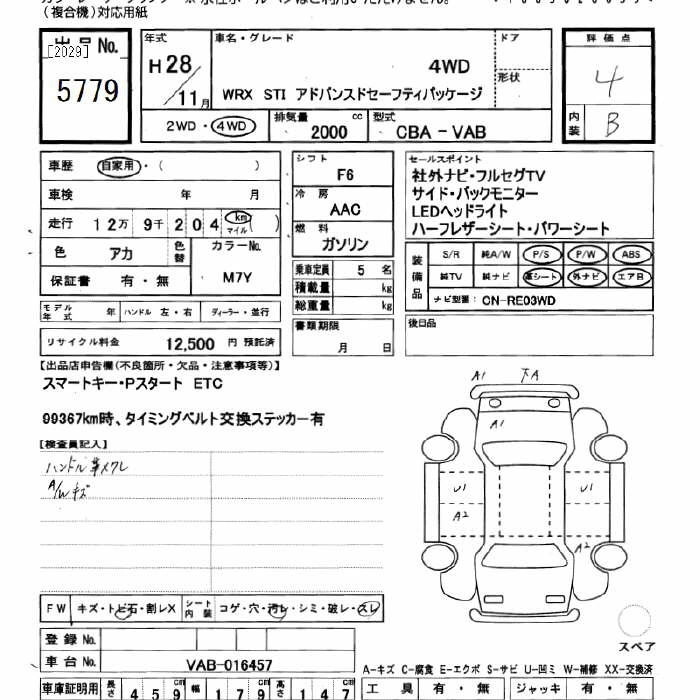 (複合機)対応用紙
出品No.
[2029]
5779
年式
H28/11月
車名・グレード
ドア
4WD
形状
WRX STI アドバンスドセーフティパッケージ
評価点
4
内装
B
2WD・4WD
排気量
2000 cc
型式
CBA-VAB
車歴 自家用・( )
車検 年 月
走行 12万 9千 204 km マイル ( )
色 アカ
色替
カラーNo.
M7Y
保証書 有・無
シフト
F6
冷房
AAC
燃料
ガソリン
乗車定員 5 名
積載量 kg
総重量 kg
セールスポイント
社外ナビ・フルセグTV
サイド・バックモニター
LEDヘッドライト
ハーフレザーシート・パワーシート
装備品
S/R 純A/W P/S P/W ABS
純TV 純ナビ 革シート 外ナビ エアB
ナビ型番: CN-RE03WD
モデル年式 年 ハンドル 左・右 ディーラー・並行
リサイクル料金 12,500 円 預託済
書類期限
月 日
後日品
【出品店申告欄(不良箇所・欠品・注意事項等)】
スマートキー・Pスタート ETC
99367km時、タイミングベルト交換ステッカー有
【検査員記入】
ハンドル革メクレ
A/Wキズ
A1 下A
A1
U1 U1
A2
A2
スペア
FW キズ・トビ石・割レX
シート内装 コゲ・穴・汚レ・シミ・破レ・スレ
登録No.
車台No. VAB-016457
A-キズ C-腐食 E-エクボ S-サビ U-凹ミ W-補修 XX-交換済
車庫証明用 長さ 459 cm 幅 179 cm 高さ 147 cm
工具 有・無 ジャッキ 有・無